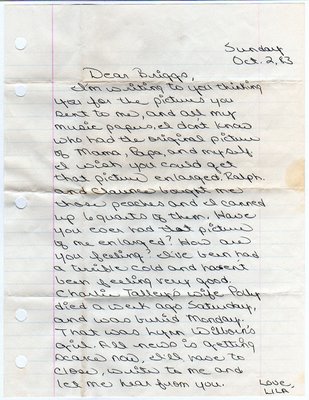 Sunday
Oct. 2, 83
Dear Briggs,
I'm writing to you thinking
you for the picture you
sent to me, and all my
music papers, I don't know
who had the original picture
of Mama, Papa, and myself.
I wish you could get
that picture enlarged, Ralph,
and bought me
those peaches and I canned
up 6 quarts of them. Have
you ever had that picture
of me enlarged? How are
you feeling? I've been had
a terrible cold and havent
been feeling very good.
Charlie Talley's wife Polly
died a week ago Saturday,
and was buried Monday.
That was Lynn Wilborn's
girl. All news is getting
scarce now, I'll have to
close, write to me and
let me hear from you.
Love,
LILA